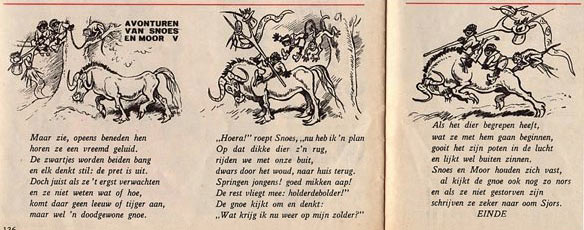 AVONTUREN
VAN SNOES
EN MOOR V
Maar zie, opeens beneden hen
horen ze een vreemd geluid.
De zwartjes worden beiden bang
en elk denkt stil: de pret is uit.
Doch juist als ze 't ergst verwachten
en ze niet weten wat of hoe,
komt daar geen leeuw of tijger aan,
maar wel 'n doodgewone gnoe.
„Hoera!" roept Snoes, „nu heb ik 'n plan
Op dat dikke dier z'n rug,
rijden we met onze buit,
dwars door het woud, naar huis terug.
Springen jongens! goed mikken aap!
De rest vliegt mee: holderdebolder!"
De gnoe kijkt om en denkt:
„Wat krijg ik nu weer op mijn zolder?"
Als het dier begrepen heeft,
wat ze met hem gaan beginnen,
gooit het zijn poten in de lucht
en lijkt wel buiten zinnen.
Snoes en Moor houden zich vast,
al kijkt de gnoe ook nog zo nors
en als ze niet gestorven zijn
schrijven ze zeker naar oom Sjors.
EINDE
136